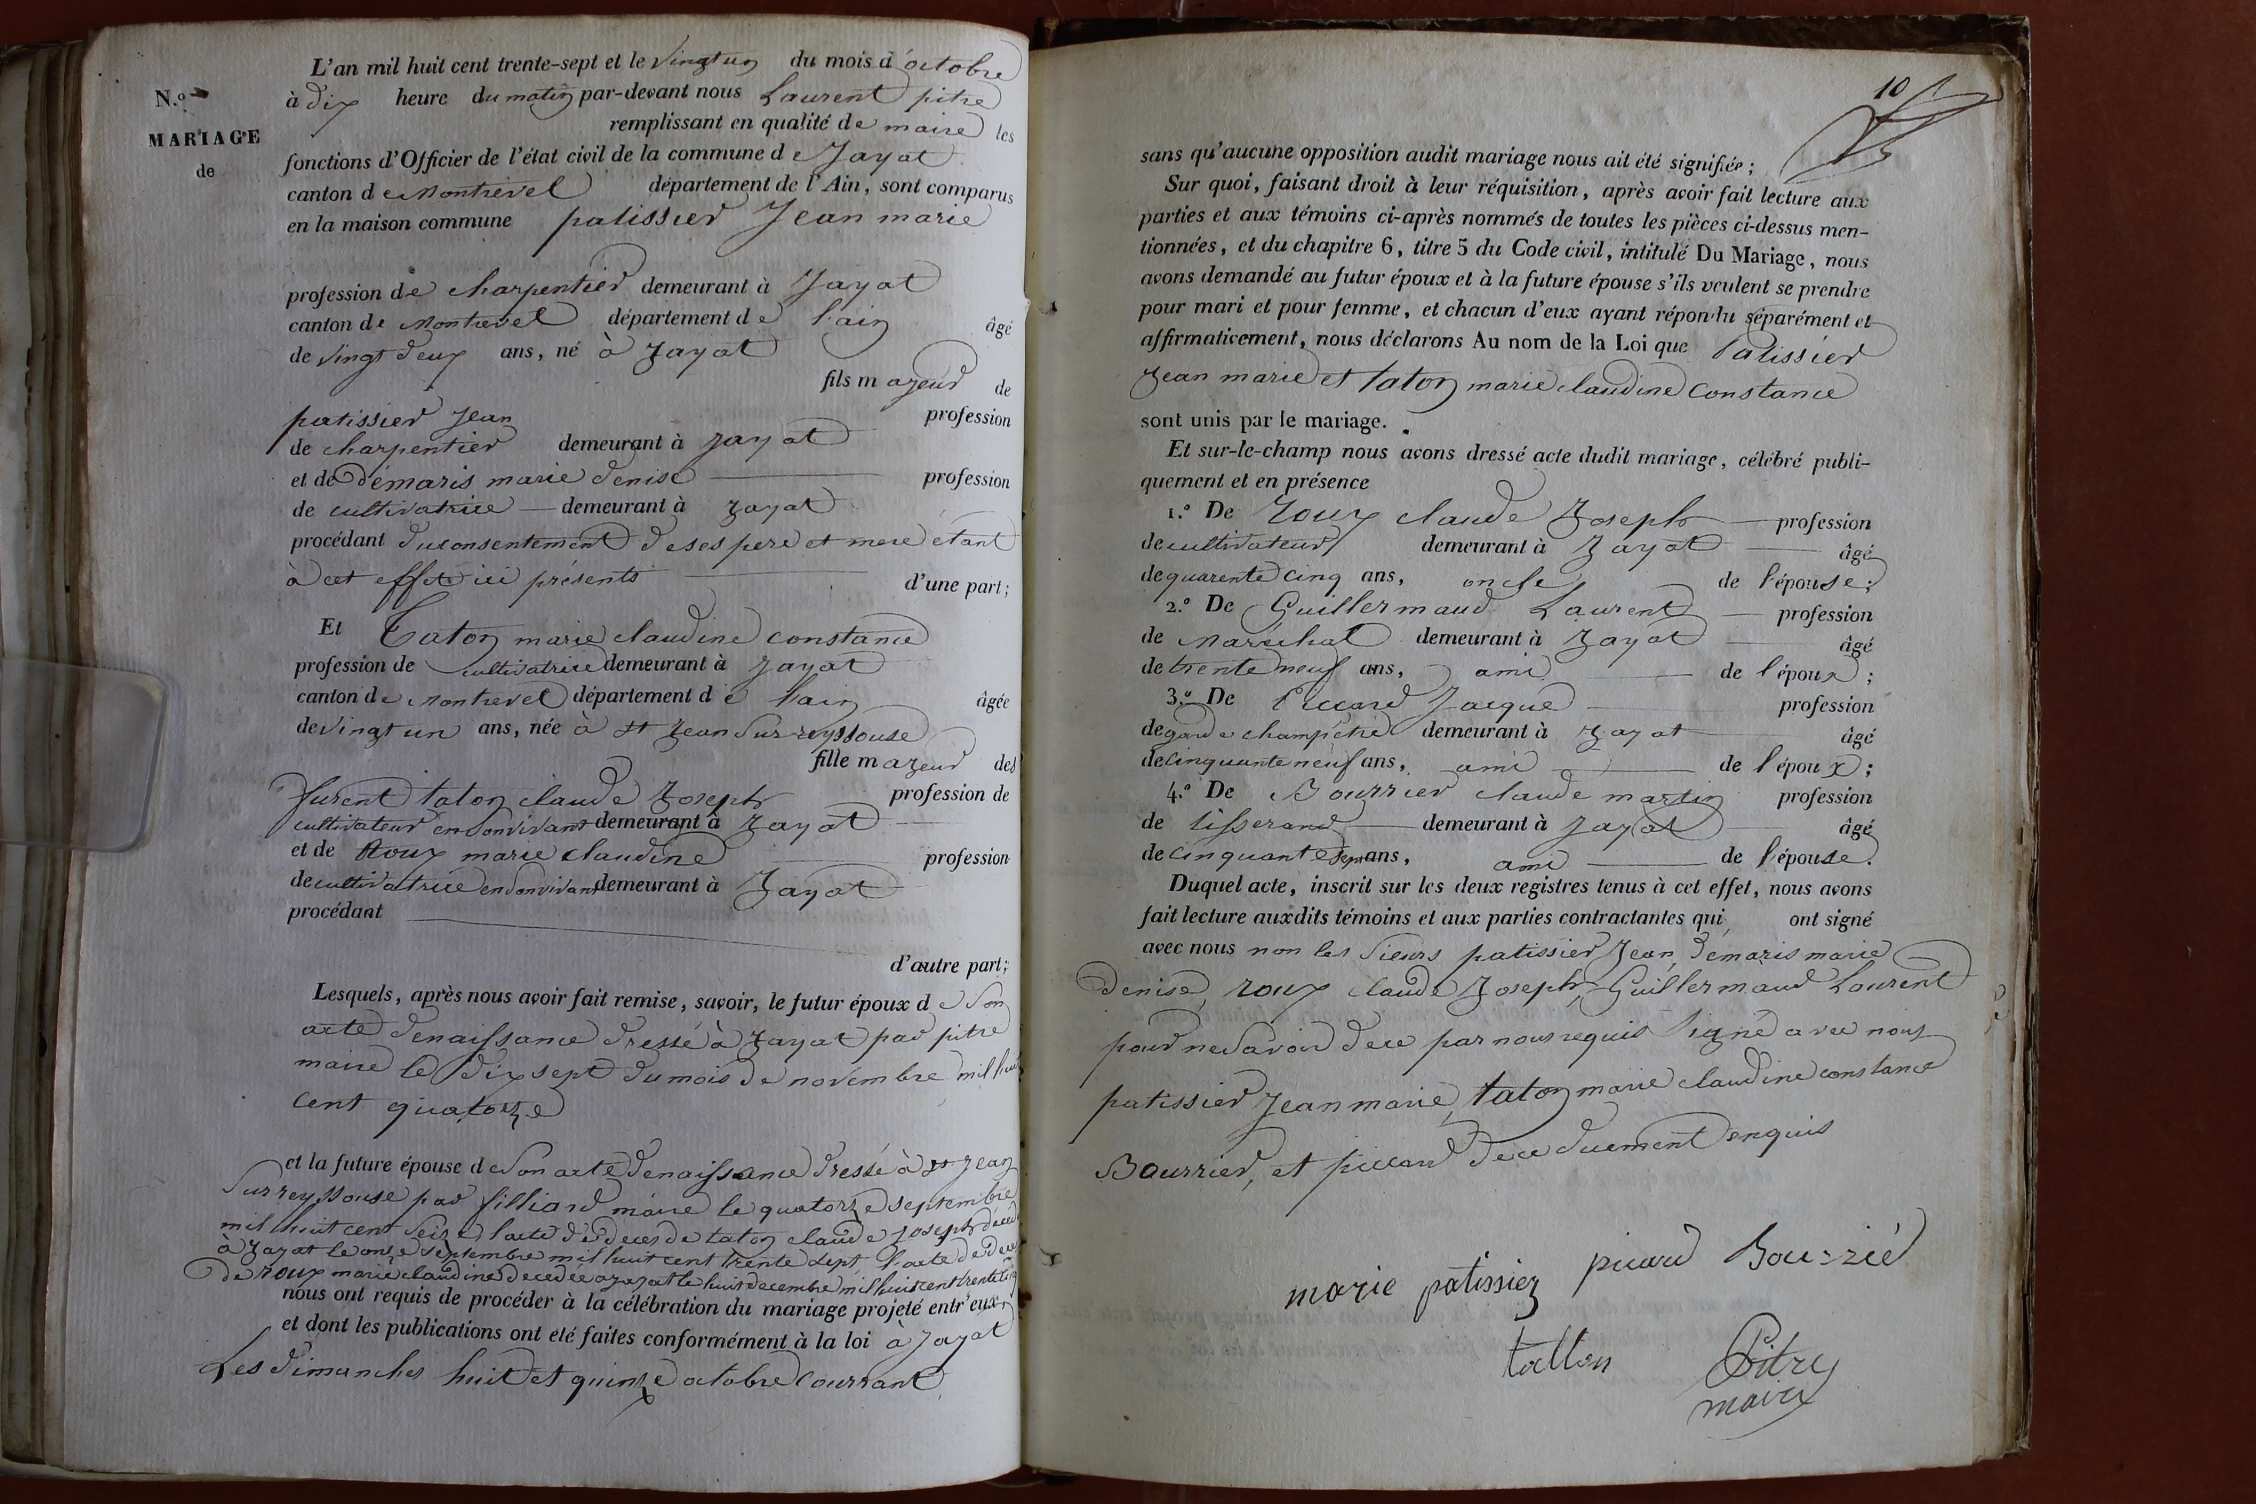 L'an mil huit cent trente-sept et le vingt un du mois d'octobre
N.º
à dix heure du matin par-devant nous Laurent pitre
remplissant en qualité de maire les
MARIAGE
fonctions d'Officier de l'état civil de la commune de Jayat
de
canton de Montrevel département de l'Ain, sont comparus
en la maison commune patissier Jean marie
profession de charpentier demeurant à Jayat
canton de Montrevel département de l'ain âgé
de vingt deux ans, né à Jayat
fils majeur de
patissier Jean profession
de charpentier demeurant à Jayat
et de démaris marie denise profession
de cultivatrice demeurant à Jayat
procédant du consentement de ses pere et mere étant
à cet effet ici présents d'une part;
Et taton marie claudine constance
profession de cultivatrice demeurant à Jayat
canton de Montrevel département de l'ain âgée
de vingt un ans, née à st Jean sur reyssouse
fille majeur des
furent taton claude Joseph profession de
cultivateur en son vivant demeurant à Jayat
et de Roux marie claudine profession
de cultivatrice en son vivant demeurant à Jayat
procédant
d'autre part;
Lesquels, après nous avoir fait remise, savoir, le futur époux de son
acte denaissance dressé à Jayat par pitre
maire le dix sept du mois de novembre mil huit
cent quatorze
et la future épouse de son acte denaissance dressé à st Jean
sur reyssouse par filliard maire le quatorze septembre
mil huit cent seize l'acte de deces de taton claude Joseph décédé
à Jayat le onze septembre mil huit cent trente sept l'acte de deces
de roux marie claudine decedée a jayat le huit decembre mil huit cent trente cinq
nous ont requis de procéder à la célébration du mariage projeté entr'eux,
et dont les publications ont été faites conformément à la loi à Jayat
Les dimanches huit et quinze octobre courrant
10
sans qu'aucune opposition audit mariage nous ait été signifiée;
Sur quoi, faisant droit à leur réquisition, après avoir fait lecture aux
parties et aux témoins ci-après nommés de toutes les pièces ci-dessus men-
tionnées, et du chapitre 6, titre 5 du Code civil, intitulé Du Mariage, nous
avons demandé au futur époux et à la future épouse s'ils veulent se prendre
pour mari et pour femme, et chacun d'eux ayant répondu séparément et
affirmativement, nous déclarons Au nom de la Loi que Patissier
Jean marie et taton marie claudine constance
sont unis par le mariage.
Et sur-le-champ nous avons dressé acte dudit mariage, célébré publi-
quement et en présence
1.º De Roux claude Joseph profession
de cultivateur demeurant à Jayat âgé
de quarente cinq ans, oncle de l'épouse;
2.º De Guillermaud Laurent profession
de Maréchal demeurant à Jayat âgé
de trente neuf ans, ami de l'époux;
3.º De Piccard Jacque profession
de garde champétre demeurant à Jayat âgé
de cinquante neuf ans, ami de l'époux;
4.º De Bourrier claude martin profession
de tisserand demeurant à Jayat âgé
de cinquante sept ans, ami de l'épouse.
Duquel acte, inscrit sur les deux registres tenus à cet effet, nous avons
fait lecture auxdits témoins et aux parties contractantes qui ont signé
avec nous non les sieurs patissier Jean, démaris marie
denise, roux claude Joseph, Guillermaud Laurent
pour ne savoir de ce par nous requis signé avec nous
patissier Jean marie, taton marie claudine constance
Bourrier, et piccard de ce duement enquis
marie patissier picard Bourrié
tatton Pitre
maire